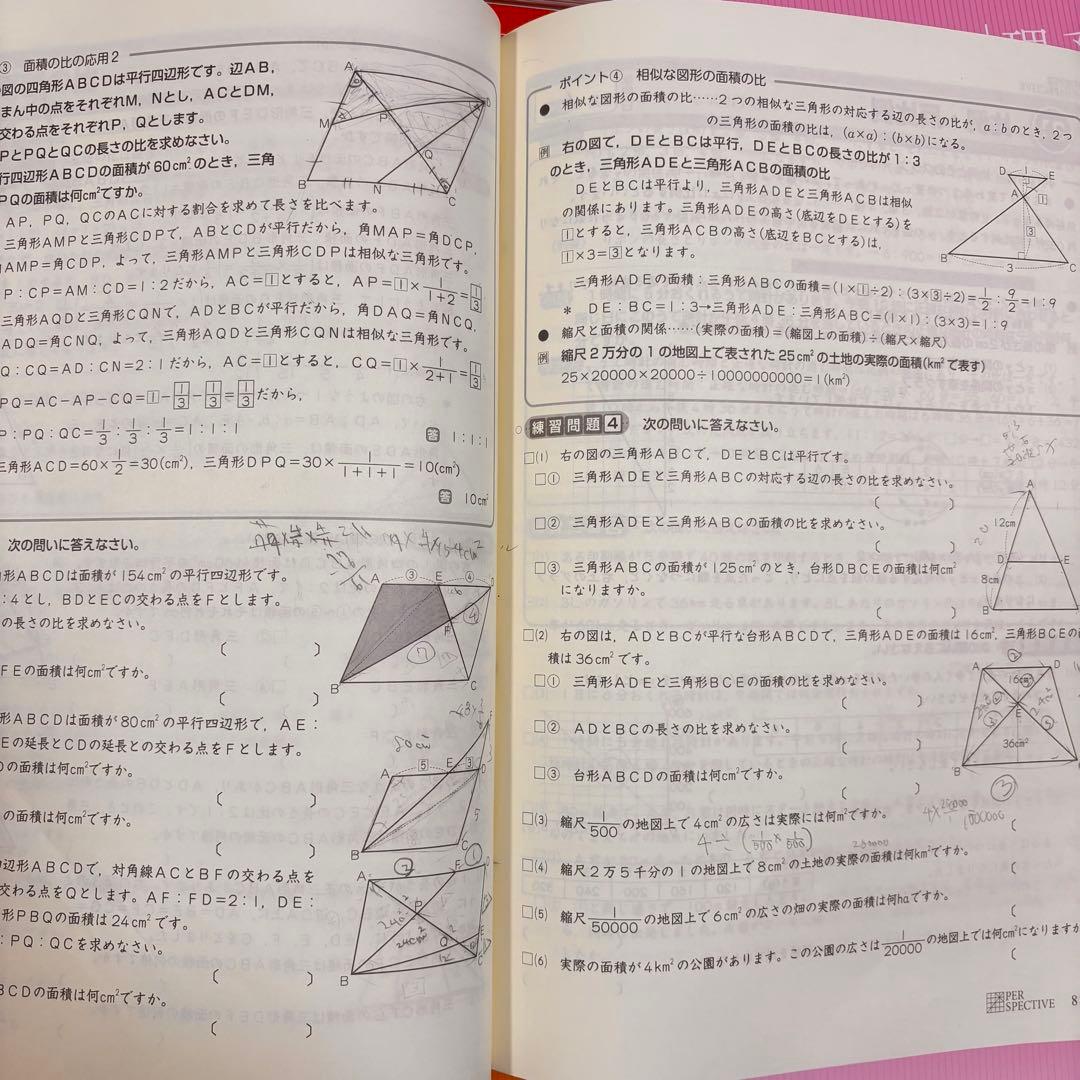 ③ 面積の比の応用2
図の四角形ABCDは平行四辺形です。辺AB,
まん中の点をそれぞれM, Nとし, ACとDM,
交わる点をそれぞれP, Qとします。
PとPQとQCの長さの比を求めなさい。
行四辺形ABCDの面積が60cm²のとき, 三角
PQの面積は何cm²ですか。
AP, PQ, QCのACに対する割合を求めて長さを比べます。
三角形AMPと三角形CDPで, ABとCDが平行だから, 角MAP=角DCP,
AMP=角CDP, よって, 三角形AMPと三角形CDPは相似な三角形です。
P:CP=AM:CD=1:2だから, AC=1とすると, AP=1×1/(1+2)=1/3
三角形AQDと三角形CQNで, ADとBCが平行だから, 角DAQ=角NCQ,
ADQ=角CNQ, よって, 三角形AQDと三角形CQNは相似な三角形です。
Q:CQ=AD:CN=2:1だから, AC=1とすると, CQ=1×1/(2+1)=1/3
PQ=AC−AP−CQ=1−1/3−1/3=1/3だから,
P:PQ:QC=1/3:1/3:1/3=1:1:1
答 1:1:1
三角形ACD=60×1/2=30(cm²), 三角形DPQ=30×1/(1+1+1)=10(cm²)
答 10cm²
A
D
M
P
Q
B
N
C
次の問いに答えなさい。
形ABCDは面積が154cm²の平行四辺形です。
:4とし, BDとECの交わる点をFとします。
の長さの比を求めなさい。
( )
FEの面積は何cm²ですか。
( )
A ③ E ④
F
⑦
B
C
形ABCDは面積が80cm²の平行四辺形で, AE:
Eの延長とCDの延長との交わる点をFとします。
の面積は何cm²ですか。
( )
の面積は何cm²ですか。
( )
A ⑤ E ③ D
B
C
辺形ABCDで, 対角線ACとBFの交わる点を
交わる点をQとします。AF:FD=2:1, DE:
形PBQの面積は24cm²です。
:PQ:QCを求めなさい。
( )
BCDの面積は何cm²ですか。
( )
A
F
P
24cm²
Q
E
B
C
ポイント④ 相似な図形の面積の比
● 相似な図形の面積の比……2つの相似な三角形の対応する辺の長さの比が, a:bのとき, 2つ
の三角形の面積の比は, (a×a):(b×b)になる。
例 右の図で, DEとBCは平行, DEとBCの長さの比が1:3
のとき, 三角形ADEと三角形ACBの面積の比
DEとBCは平行より, 三角形ADEと三角形ACBは相似
の関係にあります。三角形ADEの高さ(底辺をDEとする)を
1とすると, 三角形ACBの高さ(底辺をBCとする)は,
1×3=3となります。
三角形ADEの面積:三角形ABCの面積=(1×1÷2):(3×3÷2)=1/2:9/2=1:9
* DE:BC=1:3→三角形ADE:三角形ABC=(1×1):(3×3)=1:9
D 1 E
A
1
3
B
3
C
● 縮尺と面積の関係……(実際の面積)=(縮図上の面積)÷(縮尺×縮尺)
例 縮尺2万分の1の地図上で表された25cm²の土地の実際の面積(km²で表す)
25×20000×20000÷10000000000=1(km²)
練習問題4 次の問いに答えなさい。
□(1) 右の図の三角形ABCで, DEとBCは平行です。
□① 三角形ADEと三角形ABCの対応する辺の長さの比を求めなさい。
( )
□② 三角形ADEと三角形ABCの面積の比を求めなさい。
( )
□③ 三角形ABCの面積が125cm²のとき, 台形DBCEの面積は何cm²
になりますか。
( )
A
12cm
D
E
8cm
B
□(2) 右の図は, ADとBCが平行な台形ABCDで, 三角形ADEの面積は16cm², 三角形BCEの面
積は36cm²です。
□① 三角形ADEと三角形BCEの面積の比を求めなさい。
( )
□② ADとBCの長さの比を求めなさい。
( )
□③ 台形ABCDの面積は何cm²ですか。
( )
A ② D
16cm²
E
36cm²
B
③
□(3) 縮尺1/500の地図上で4cm²の広さは実際には何m²ですか。
4÷(1/500×1/500)
(
□(4) 縮尺2万5千分の1の地図上で8cm²の土地の実際の面積は何km²ですか。
□(5) 縮尺1/50000の地図上で6cm²の広さの畑の実際の面積は何haですか。
(
□(6) 実際の面積が4km²の公園があります。この公園の広さは1/20000の地図上では何cm²になりますか
(
PER
SPECTIVE
8